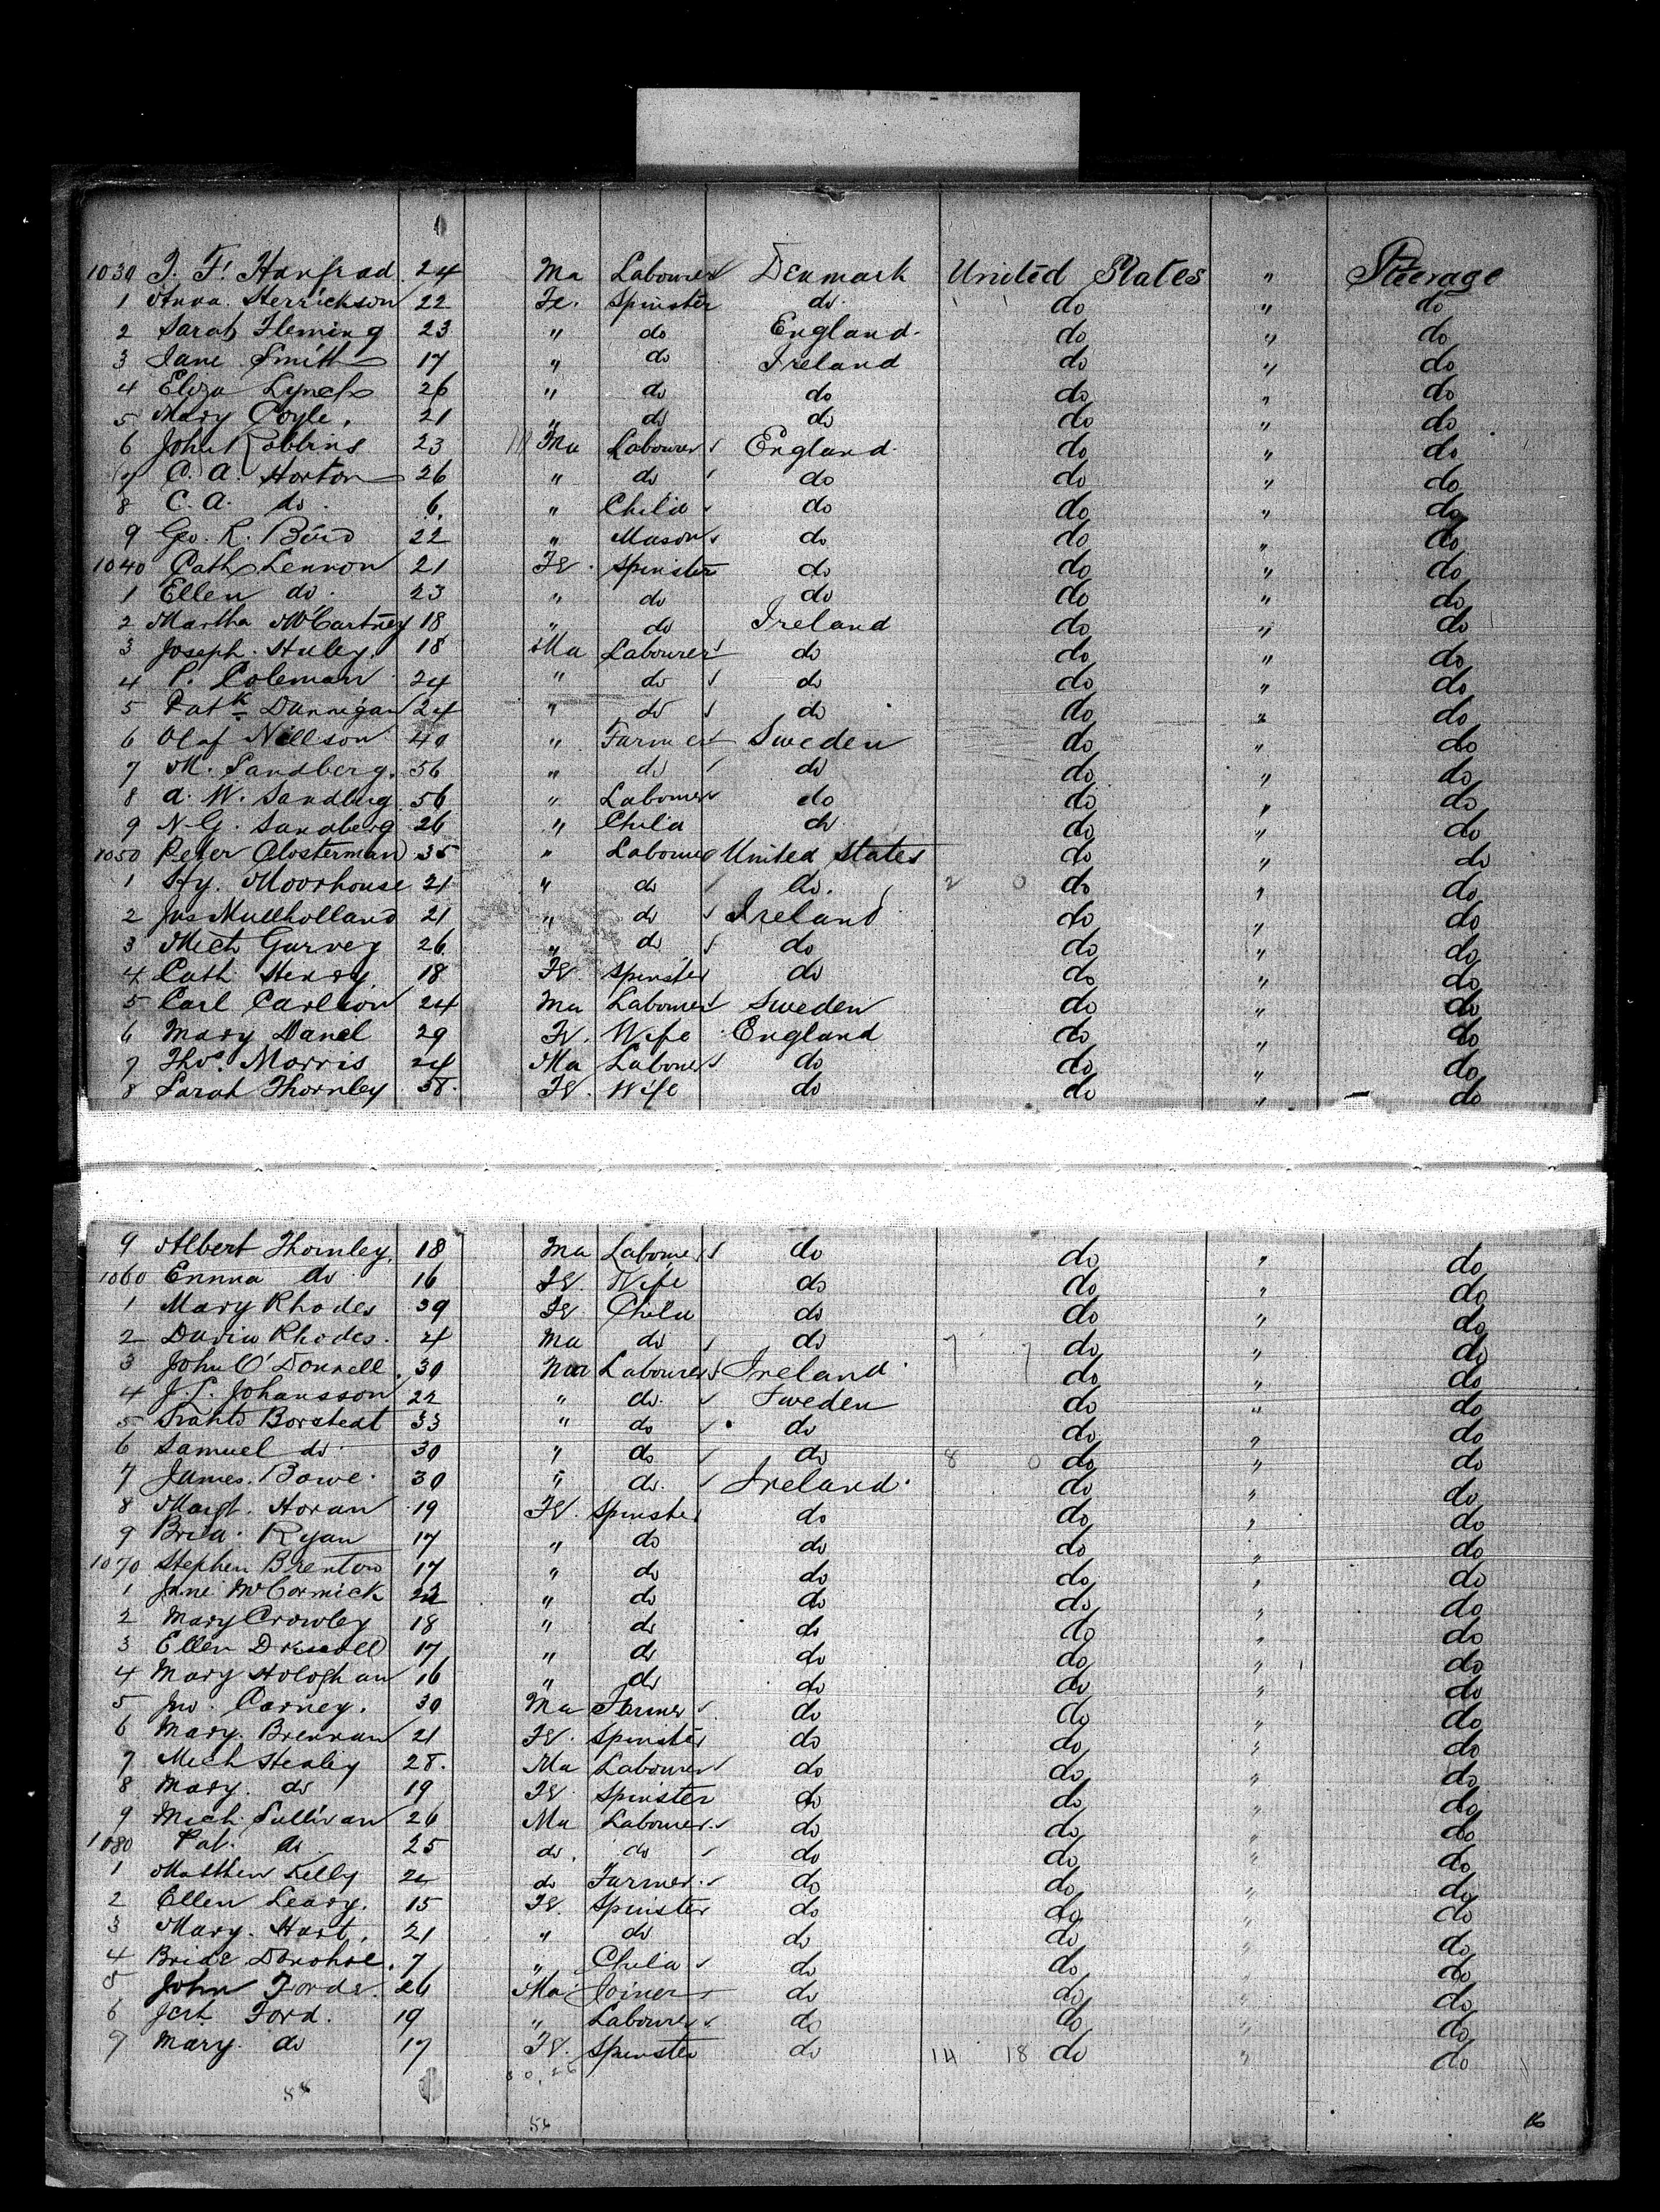 1030 J. F. Hanfrad 24 Ma Labourer Denmark United States " Steerage
1 Anna Herrickson 22 Fe. Spinster do. do " do
2 Sarah Fleming 23 " do England. do " do
3 Jane Smith 17 " do Ireland do " do
4 Eliza Lynch 26 " do do do " do
5 Mary Coyle. 21 " do do do " do
6 John Robbins 23 Ma Labourer England. do " do
7 C. A. Horton 26 " do do do " do
8 C. A. do. 6. " Child do do " do
9 Geo. R. Bird 22 " Mason do do " do
1040 Cath Lennon 21 Fe. Spinster do do " do
1 Ellen do. 23 " do do do " do
2 Martha McCartney 18 " do Ireland do " do
3 Joseph Huley. 18 Ma Labourer do do " do
4 P. Coleman 24 " do do do " do
5 Patk Dunnigan 24 " do do do " do
6 Olaf Nillson 40 " Farmer Sweden do " do
7 M. Sandberg. 56 " do do do " do
8 A. W. Sandberg. 56 " Labourer do do " do
9 N. G. Sandberg 26 " Child do do " do
1050 Peter Closterman 35 " Labourer United States do " do
1 Hy. Moorhouse 21 " do do. 2 0 do " do
2 Jas Mullholland 21 " do Ireland do " do
3 Mich Garvey 26 " do do do " do
4 Cath Henry. 18 Fe. Spinster do do " do
5 Carl Carlson 24 Ma Labourer Sweden do " do
6 Mary Danel 29 Fe. Wife England do " do
7 Thos. Morris 24 Ma Labourer do do " do
8 Sarah Thornley 38. Fe. Wife do do " do
9 Albert Thornley. 18 Ma Labourer do do " do
1060 Emma do. 16 Fe. Wife do do " do
1 Mary Rhodes 39 Fe Child do do " do
2 David Rhodes. 4 Ma do do 7 7 do " do
3 John O'Donnell. 30 Ma Labourer Ireland do " do
4 J. P. Johansson 22 " do. Sweden do " do
5 Borstedt 33 " do do do " do
6 Samuel do. 30 " do do 8 0 do " do
7 James. Bowe. 30 " do. Ireland. do " do
8 Margt. Horan 19 Fe. Spinster do do " do
9 Brid. Ryan 17 " do do do " do
1070 Stephen Brenton 17 " do do do " do
1 Jane McCormick 22 " do do do " do
2 Mary Crowley 18 " do do do " do
3 Ellen Driscoll 17 " do do do " do
4 Mary Hologhan 16 " do do do " do
5 Jno. Carney. 30 Ma Farmer do do " do
6 Mary. Brennan 21 Fe. Spinster do do " do
7 Mich Healey 28. Ma Labourer do do " do
8 Mary. do 19 Fe Spinster do do " do
9 Mich. Sullivan 26 Ma Labourer do do " do
1080 Pat. do 25 do. do do do " do
1 Matthew Kelly do Farmer. do do " do
2 Ellen Leary. 15 Fe. Spinster do do " do
3 Mary. Hart. 21 " do do do " do
4 Bride Donohoe. 7 " Child do do " do
5 John Forde. 26 Ma Joiner do do " do
6 Ford. 19 " Labourer do do " do
7 Mary. do 17 Fe. Spinster do 14 18 do " do
88
56
16